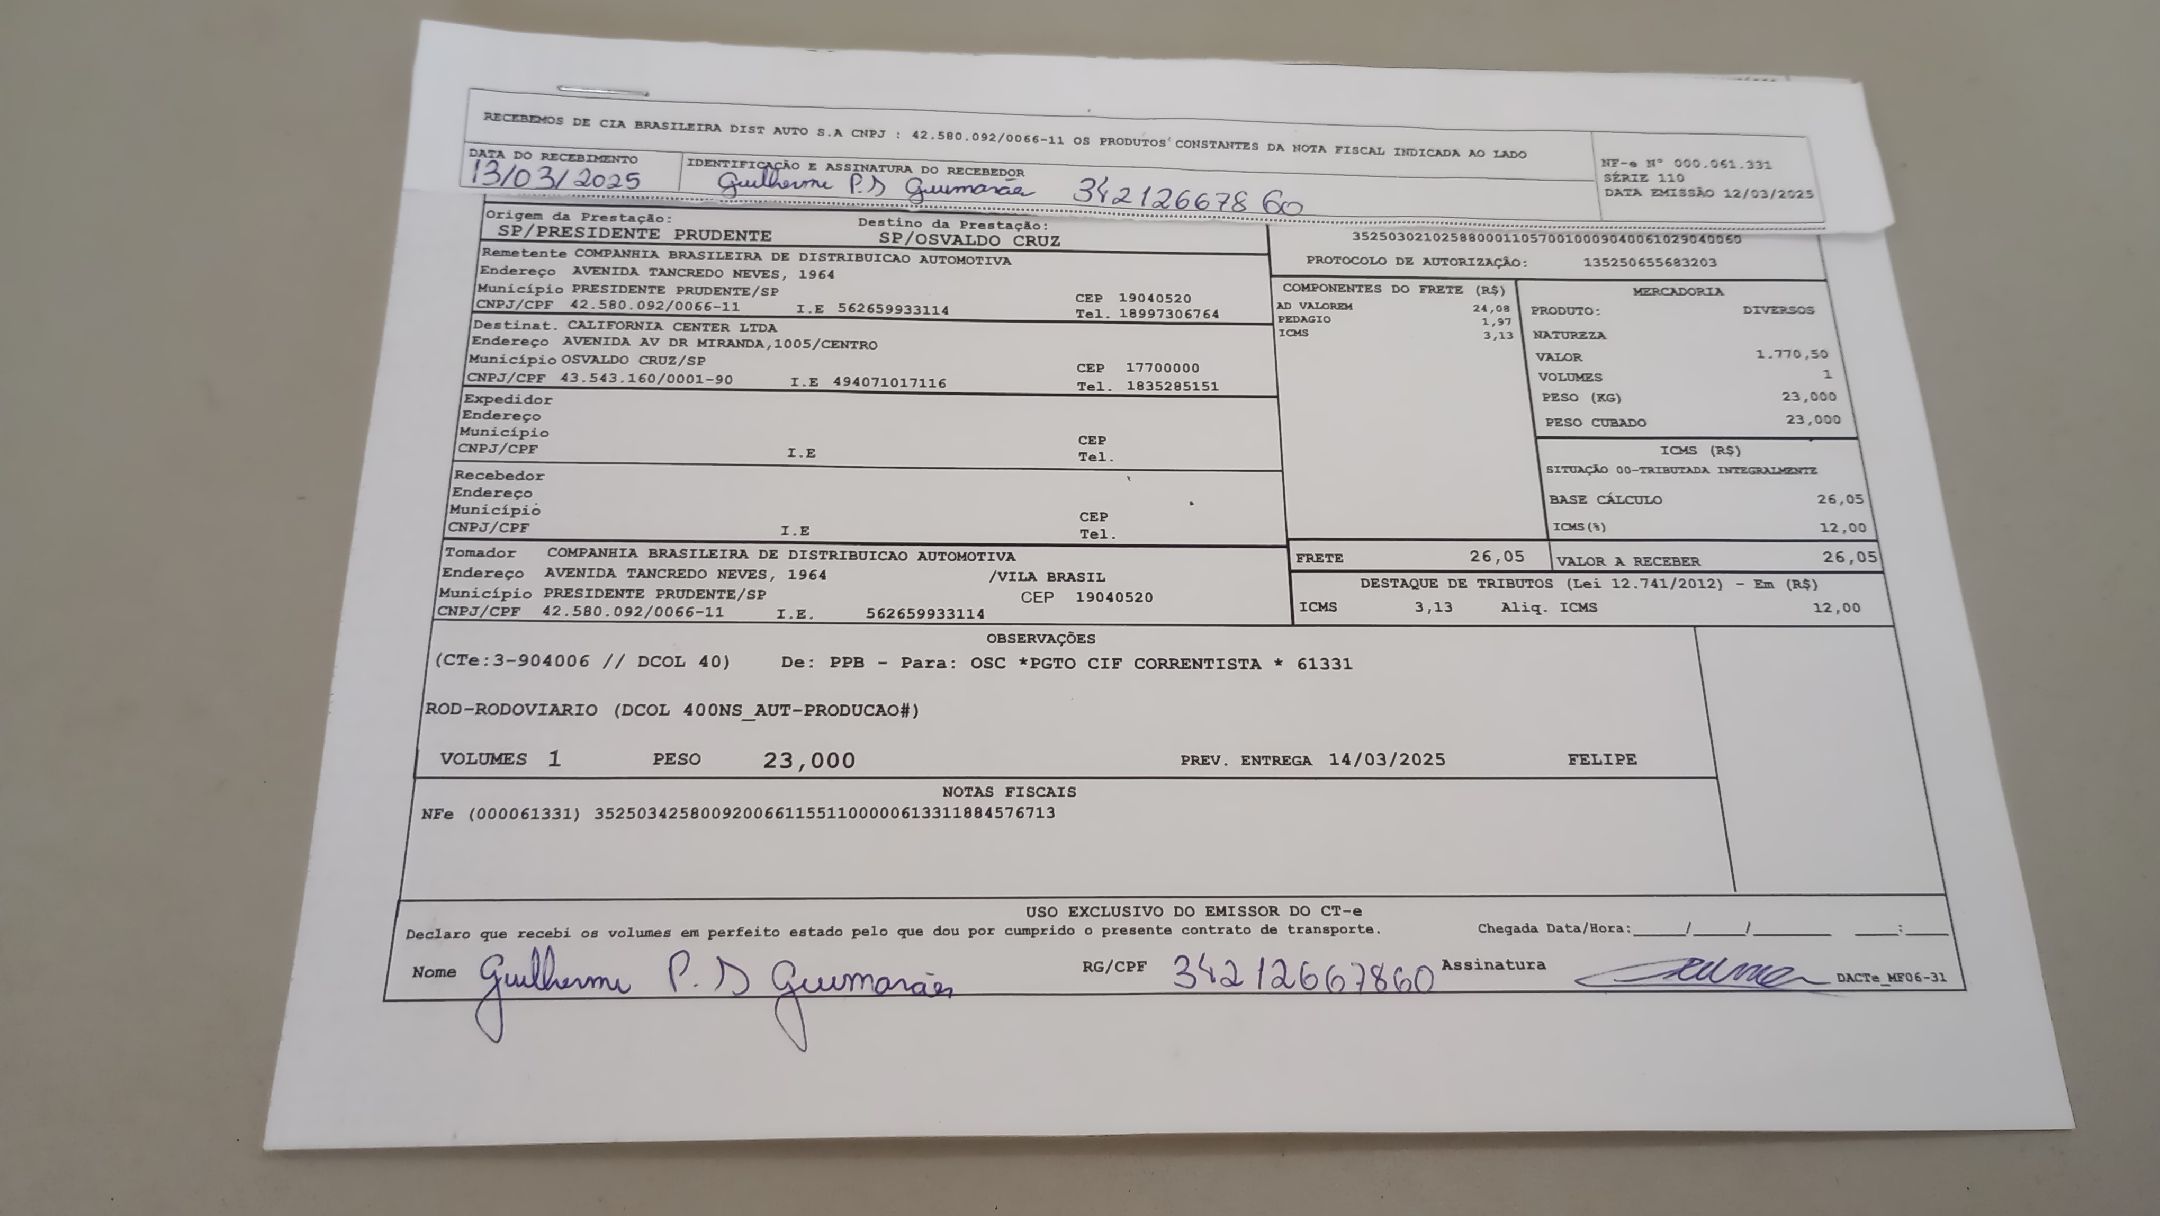 RECEBEMOS DE CIA BRASILEIRA DIST AUTO S.A CNPJ : 42.580.092/0066-11 OS PRODUTOS CONSTANTES DA NOTA FISCAL INDICADA AO LADO
NF-e Nº 000.061.331
SÉRIE 110
DATA EMISSÃO 12/03/2025
DATA DO RECEBIMENTO
13/03/2025
IDENTIFICAÇÃO E ASSINATURA DO RECEBEDOR
Guilherme P.S Guimarães 34212667860
Origem da Prestação: Destino da Prestação:
SP/PRESIDENTE PRUDENTE SP/OSVALDO CRUZ
Remetente COMPANHIA BRASILEIRA DE DISTRIBUICAO AUTOMOTIVA
Endereço AVENIDA TANCREDO NEVES, 1964
Município PRESIDENTE PRUDENTE/SP CEP 19040520
CNPJ/CPF 42.580.092/0066-11 I.E 562659933114 Tel. 18997306764
Destinat. CALIFORNIA CENTER LTDA
Endereço AVENIDA AV DR MIRANDA,1005/CENTRO
Município OSVALDO CRUZ/SP CEP 17700000
CNPJ/CPF 43.543.160/0001-90 I.E 494071017116 Tel. 1835285151
Expedidor
Endereço
Município CEP
CNPJ/CPF I.E Tel.
Recebedor
Endereço
Município CEP
CNPJ/CPF I.E Tel.
Tomador COMPANHIA BRASILEIRA DE DISTRIBUICAO AUTOMOTIVA
Endereço AVENIDA TANCREDO NEVES, 1964 /VILA BRASIL
Município PRESIDENTE PRUDENTE/SP CEP 19040520
CNPJ/CPF 42.580.092/0066-11 I.E. 562659933114
35250302102588000110570010009040061029040060
PROTOCOLO DE AUTORIZAÇÃO: 135250655683203
COMPONENTES DO FRETE (R$)
AD VALOREM 24,08
PEDAGIO 1,97
ICMS 3,13
MERCADORIA
PRODUTO: DIVERSOS
NATUREZA
VALOR 1.770,50
VOLUMES 1
PESO (KG) 23,000
PESO CUBADO 23,000
ICMS (R$)
SITUAÇÃO 00-TRIBUTADA INTEGRALMENTE
BASE CÁLCULO 26,05
ICMS(%) 12,00
FRETE 26,05 VALOR A RECEBER 26,05
DESTAQUE DE TRIBUTOS (Lei 12.741/2012) - Em (R$)
ICMS 3,13 Aliq. ICMS 12,00
OBSERVAÇÕES
(CTe:3-904006 // DCOL 40) De: PPB - Para: OSC *PGTO CIF CORRENTISTA * 61331
ROD-RODOVIARIO (DCOL 400NS_AUT-PRODUCAO#)
VOLUMES 1 PESO 23,000 PREV. ENTREGA 14/03/2025 FELIPE
NOTAS FISCAIS
NFe (000061331) 35250342580092006611551100000613311884576713
USO EXCLUSIVO DO EMISSOR DO CT-e
Declaro que recebi os volumes em perfeito estado pelo que dou por cumprido o presente contrato de transporte. Chegada Data/Hora:_____/_____/_______ ____:____
Nome Guilherme P. S Guimarães RG/CPF 34212667860 Assinatura DACTe_MF06-31